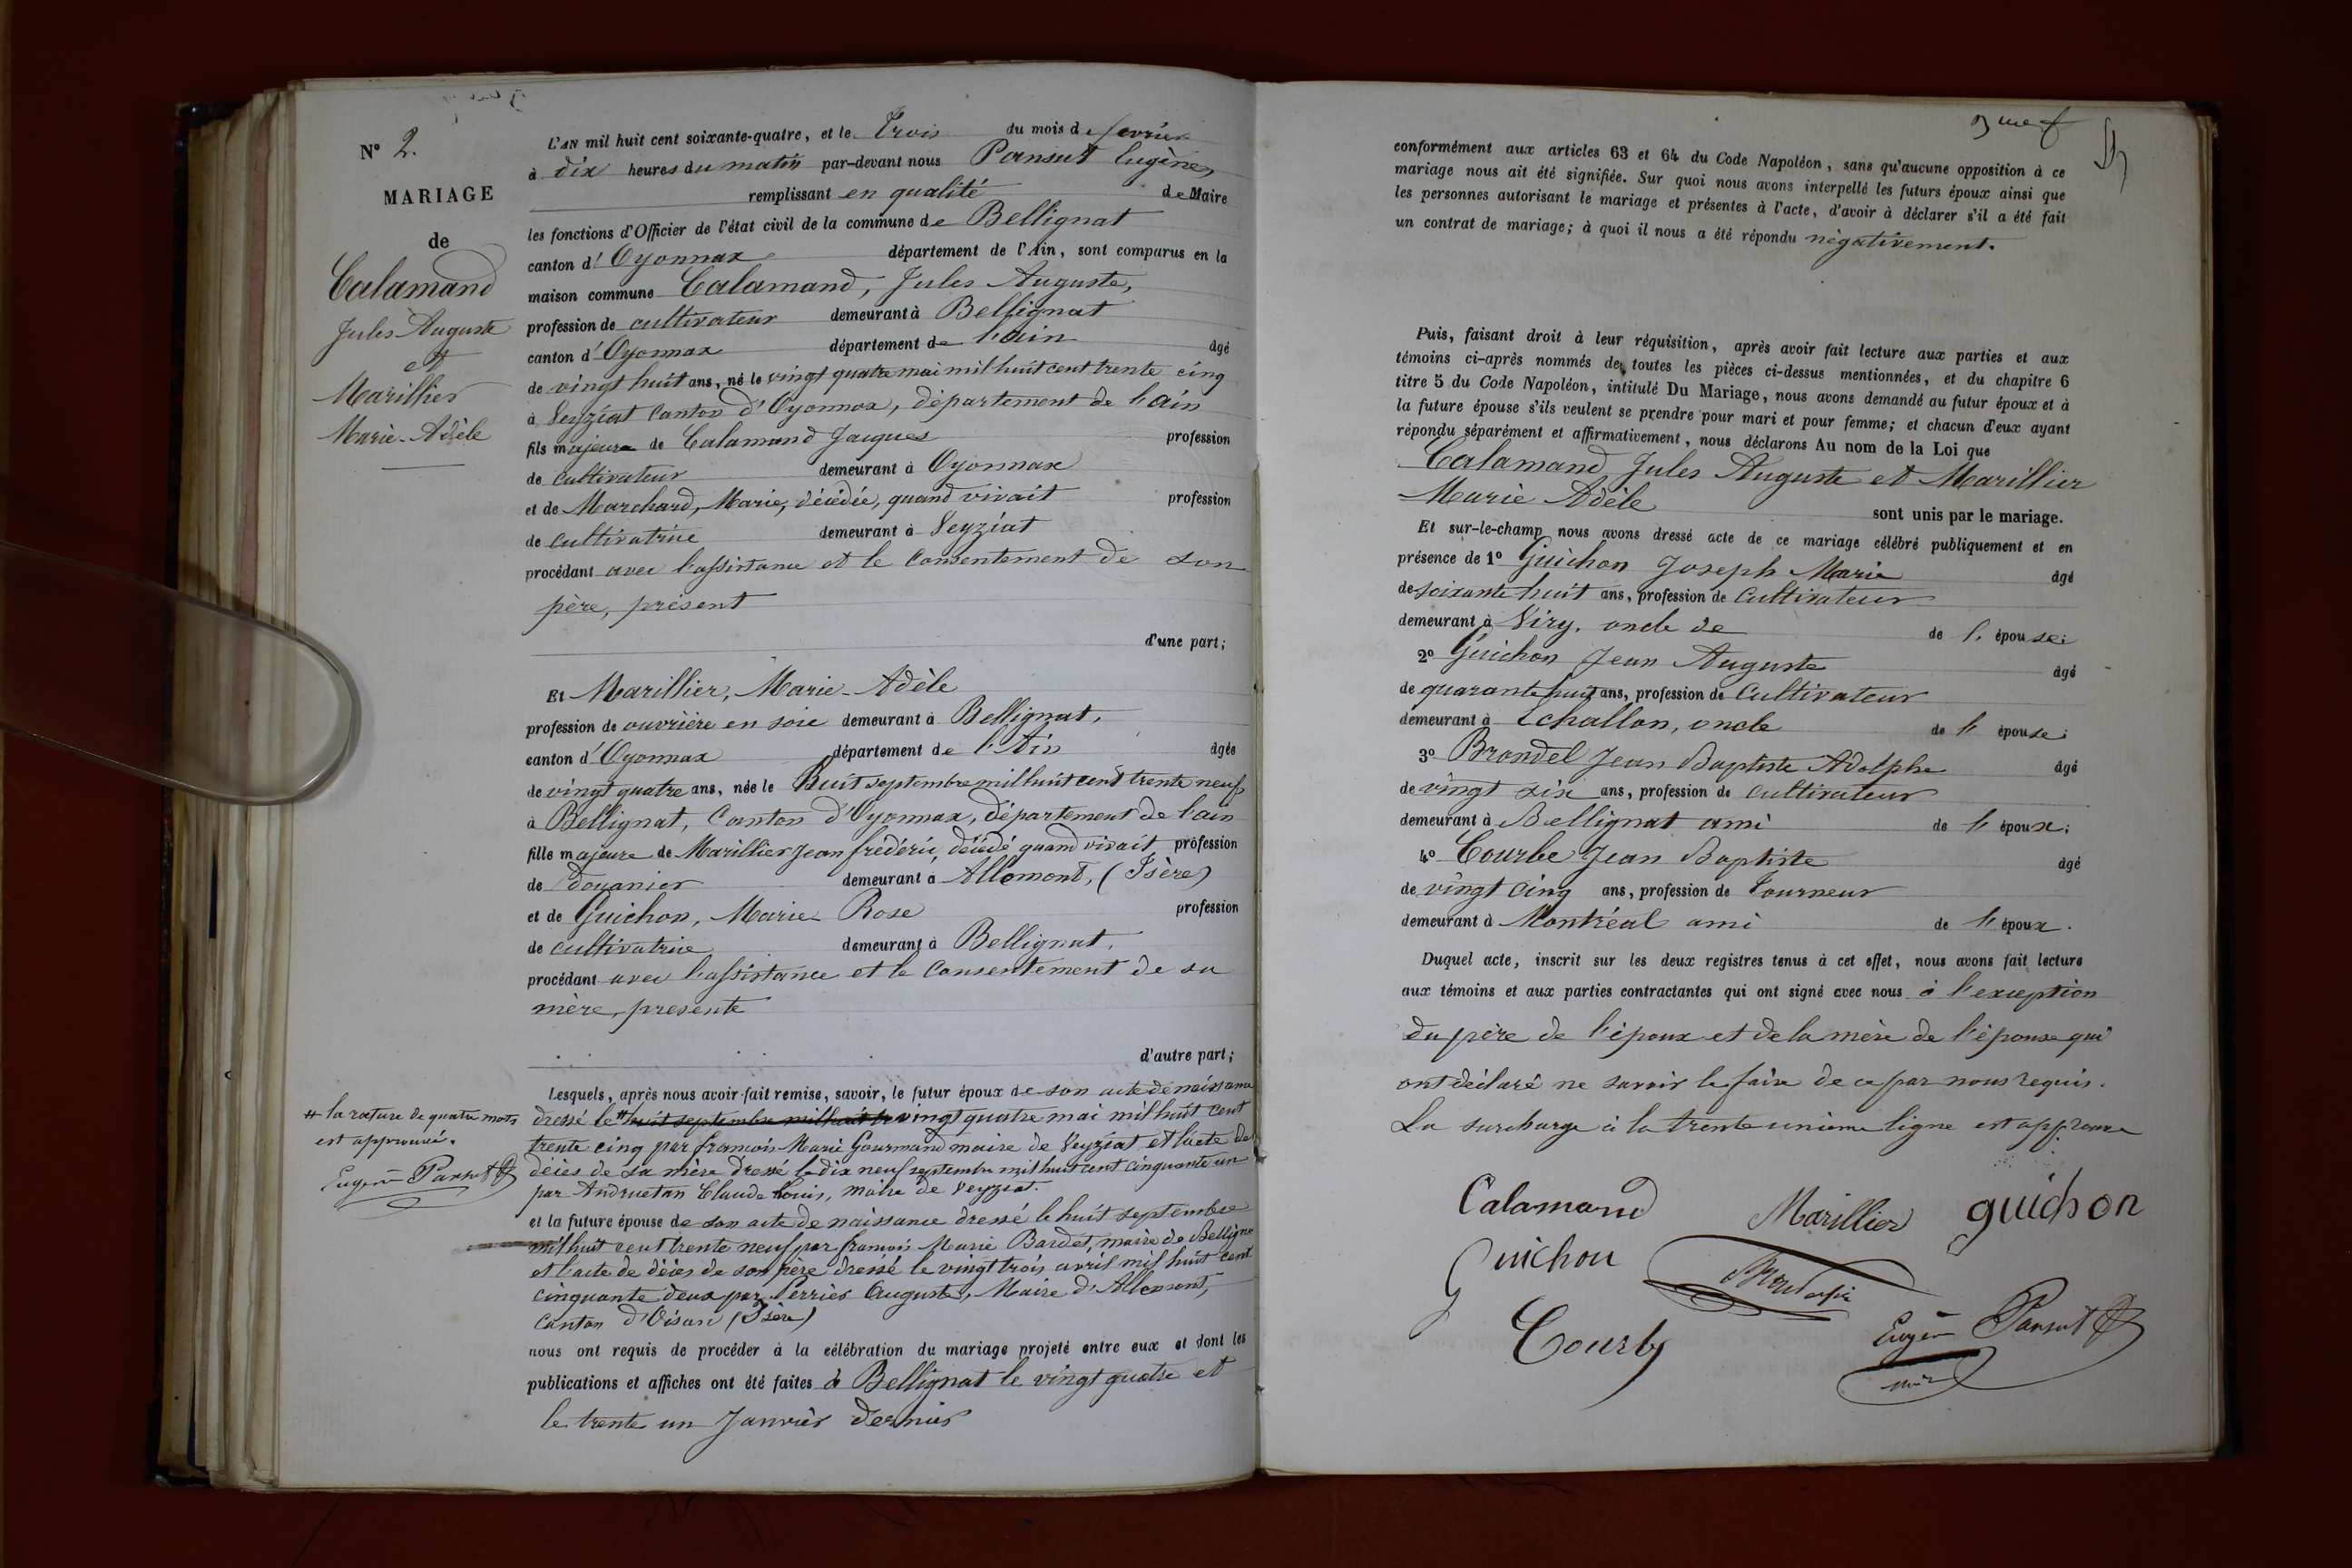 N° 2.
MARIAGE
de
Calamand
Jules Auguste
et
Marillier
Marie-Adèle
L'AN mil huit cent soixante-quatre, et le Trois du mois de fevrier
à dix heures du matin par-devant nous Pansut Eugène,
remplissant en qualité de Maire
les fonctions d'Officier de l'état civil de la commune de Bellignat
canton d'Oyonnax département de l'Ain, sont comparus en la
maison commune Calamand, Jules Auguste,
profession de cultivateur demeurant à Bellignat
canton d'Oyonnax département de l'ain âgé
de vingt huit ans, né le vingt quatre mai mil huit cent trente cinq
à Veyziat canton d'Oyonnax, département de l'ain
fils majeur de Calamand Jacques profession
de cultivateur demeurant à Oyonnax
et de Marchand, Marie, décédée, quand vivait profession
de cultivatrice demeurant à Veyziat
procédant avec l'assistance et le consentement de son
père, présent
d'une part;
Et Marillier, Marie-Adèle
profession de ouvrière en soie demeurant à Bellignat,
canton d'Oyonnax département de l'Ain âgée
de vingt quatre ans, née le huit septembre mil huit cent trente neuf
à Bellignat, canton d'Oyonnax, département de l'ain
fille majeure de Marillier Jean frédéric, décédé quand vivait profession
de douanier demeurant à Allemont, (Isère)
et de Guichon, Marie Rose profession
de cultivatrice demeurant à Bellignat,
procédant avec l'assistance et le consentement de sa
mère, presente
d'autre part;
Lesquels, après nous avoir fait remise, savoir, le futur époux de son acte de naissance
dressé le # huit septembre mil huit vingt quatre mai mil huit cent
trente cinq par françois Marie Gourmand maire de Veyziat et l'acte de
décès de sa mère dressé le dix neuf septembre mil huit cent cinquante un
par Andruetan Claude Louis, maire de Veyziat.
et la future épouse de son acte de naissance dressé le huit septembre
mil huit cent trente neuf par françois Marie Bardet, maire de Bellignat
et l'acte de décès de son père dressé le vingt trois avril mil huit cent
cinquante deux par Perrier Auguste, Maire d'Allemont,
canton d'Oisans (Isère)
nous ont requis de procéder à la célébration du mariage projeté entre eux et dont les
publications et affiches ont été faites à Bellignat le vingt quatre et
le trente un Janvier dernier
# la rature de quatre mots
est approuvé.
Eugène Pansut
conformément aux articles 63 et 64 du Code Napoléon, sans qu'aucune opposition à ce
mariage nous ait été signifiée. Sur quoi nous avons interpellé les futurs époux ainsi que
les personnes autorisant le mariage et présentes à l'acte, d'avoir à déclarer s'il a été fait
un contrat de mariage; à quoi il nous a été répondu négativement.
Puis, faisant droit à leur réquisition, après avoir fait lecture aux parties et aux
témoins ci-après nommés de toutes les pièces ci-dessus mentionnées, et du chapitre 6
titre 5 du Code Napoléon, intitulé Du Mariage, nous avons demandé au futur époux et à
la future épouse s'ils veulent se prendre pour mari et pour femme; et chacun d'eux ayant
répondu séparément et affirmativement, nous déclarons Au nom de la Loi que
Calamand Jules Auguste et Marillier
Marie Adèle sont unis par le mariage.
Et sur-le-champ nous avons dressé acte de ce mariage célébré publiquement et en
présence de 1° Guichon Joseph Marie âgé
de soixante huit ans, profession de cultivateur
demeurant à Viry, oncle de de l'épouse;
2° Guichon Jean Auguste âgé
de quarante huit ans, profession de cultivateur
demeurant à Echallon, oncle de l'épouse;
3° Brondel Jean Baptiste Adolphe âgé
de vingt six ans, profession de cultivateur
demeurant à Bellignat ami de l'époux;
4° Courbe Jean Baptiste âgé
de vingt cinq ans, profession de Tourneur
demeurant à Montréal ami de l'époux.
Duquel acte, inscrit sur les deux registres tenus à cet effet, nous avons fait lecture
aux témoins et aux parties contractantes qui ont signé avec nous à l'exception
du père de l'époux et de la mère de l'épouse qui
ont déclaré ne savoir le faire de ce par nous requis.
La surcharge à la trente unième ligne est approuvé
Calamand Marillier guichon
Guichon
Courbe Eugène Pansut